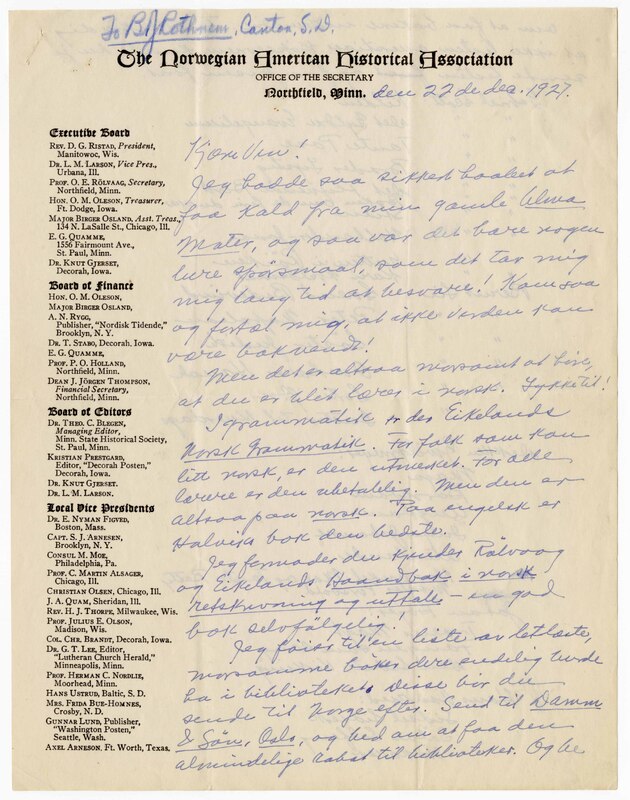 To B J Rothnem, Canton, S. D.
The Norwegian American Historical Association
OFFICE OF THE SECRETARY
Northfield, Minn. den 22 de dec. 1927.
Executive Board
REV. D. G. RISTAD, President,
Manitowoc, Wis.
DR. L. M. LARSON, Vice Pres.,
Urbana, Ill.
PROF. O. E. RÖLVAAG, Secretary,
Northfield, Minn.
HON. O. M. OLESON, Treasurer,
Ft. Dodge, Iowa.
MAJOR BIRGER OSLAND, Asst. Treas.,
134 N. LaSalle St., Chicago, Ill.
E. G. QUAMME,
1556 Fairmount Ave.,
St. Paul, Minn.
DR. KNUT GJERSET,
Decorah, Iowa.
Board of Finance
HON. O. M. OLESON,
MAJOR BIRGER OSLAND,
A. N. RYGG,
Publisher, "Nordisk Tidende,"
Brooklyn, N. Y.
DR. T. STABO, Decorah, Iowa.
E. G. QUAMME,
PROF. P. O. HOLLAND,
Northfield, Minn.
DEAN J. JÖRGEN THOMPSON,
Financial Secretary,
Northfield, Minn.
Board of Editors
DR. THEO. C. BLEGEN,
Managing Editor,
Minn. State Historical Society,
St. Paul, Minn.
KRISTIAN PRESTGARD,
Editor, "Decorah Posten,"
Decorah, Iowa.
DR. KNUT GJERSET.
DR. L. M. LARSON.
Local Vice Presidents
DR. E. NYMAN FIGVED,
Boston, Mass.
CAPT. S. J. ARNESEN,
Brooklyn, N. Y.
CONSUL M. MOE,
Philadelphia, Pa.
PROF. C. MARTIN ALSAGER,
Chicago, Ill.
CHRISTIAN OLSEN, Chicago, Ill.
J. A. QUAM, Sheridan, Ill.
REV. H. J. THORPE, Milwaukee, Wis.
PROF. JULIUS E. OLSON,
Madison, Wis.
COL. CHR. BRANDT, Decorah, Iowa.
DR. G. T. LEE, Editor,
"Lutheran Church Herald,"
Minneapolis, Minn.
PROF. HERMAN C. NORDLIE,
Moorhead, Minn.
HANS USTRUD, Baltic, S. D.
MRS. FRIDA BUE-HOMNES,
Crosby, N. D.
GUNNAR LUND, Publisher,
"Washington Posten,"
Seattle, Wash.
AXEL ARNESON, Ft. Worth, Texas.
Kjære Ven!
Jeg hadde saa sikkert haabet at
faa Kald fra min gamle Alma
Mater, og saa var det bare nogen
lure spörsmaal, som det tar mig
mig lang tid at besvare! Kom saa
og fortæl mig, at ikke verden kan
være bakvendt!
Men det er altsaa morsomt at höre,
at du er blit lærer i norsk. Lykke til!
I grammatik er der Eikelands
Norsk Grammatik. For folk som kan
litt norsk, er den utmerket. For alle
lærere er den ubetalelig. Men den er
altsaa paa norsk. Paa engelsk er
Halvis bok den bedste.
Jeg formoder du kjender Rölvaag
og Eikelands Haandbok i norsk
retskrivning og uttale - en god
bok selvfölgelig!
Jeg föier til en liste av letlæste,
morsomme böker dere endelig burde
ha i biblioteket. Disse bör du
sende til Norge efter. Send til Damm
& Sön, Oslo, og bed om at faa den
almindelige rabat til biblioteker. Og be